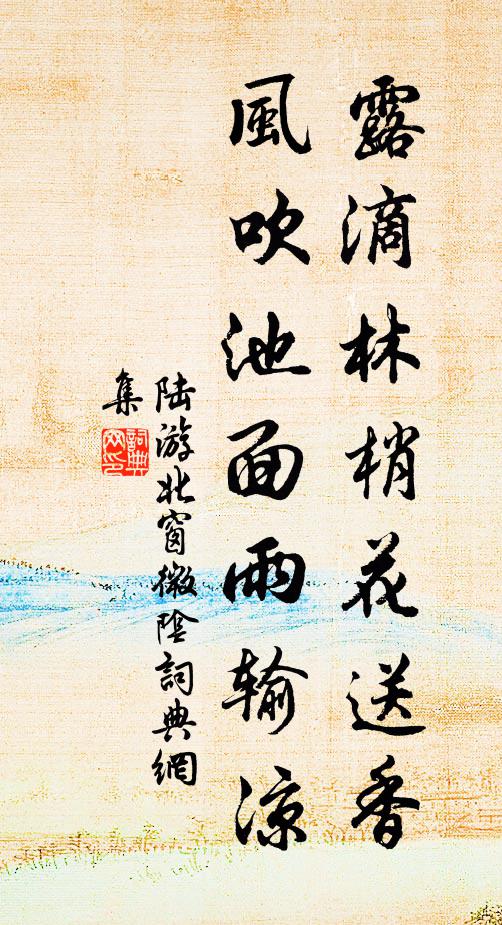 露滴林梢花送香
風吹池面雨输凉
陆游北窗微陰詞典網
集
詞典網印